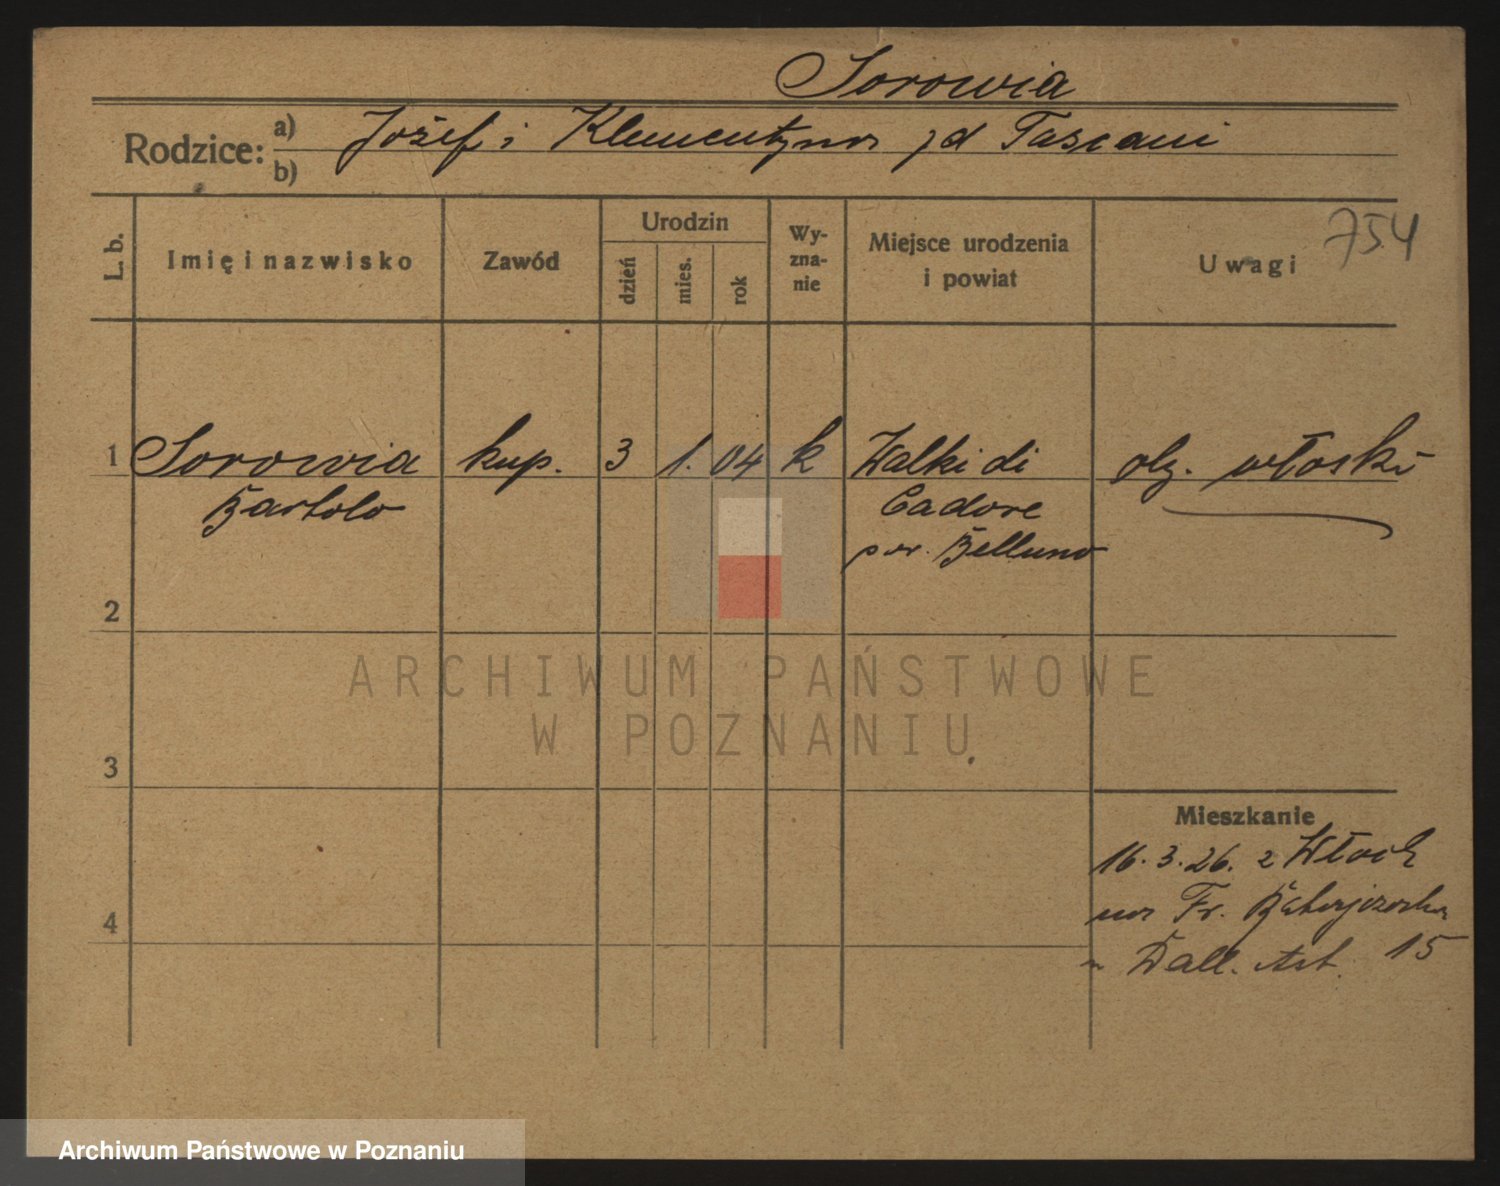 Sorowia
Rodzice: a) Józef i Klementyna zd Tascani
b)
754
L. b.
Imię i nazwisko
Zawód
Urodzin
dzień
mies.
rok
Wy-
zna-
nie
Miejsce urodzenia
i powiat
Uwagi
1 Sorowia kup. 3 1. 04 k Walki di ob. włoski
Bartolo Cadore
pow. Belluno
2
ARCHIWUM PAŃSTWOWE
W POZNANIU
3
Mieszkanie
16.3.26. z Włoch
na Fr.
4
Dall. Art. 15
Archiwum Państwowe w Poznaniu